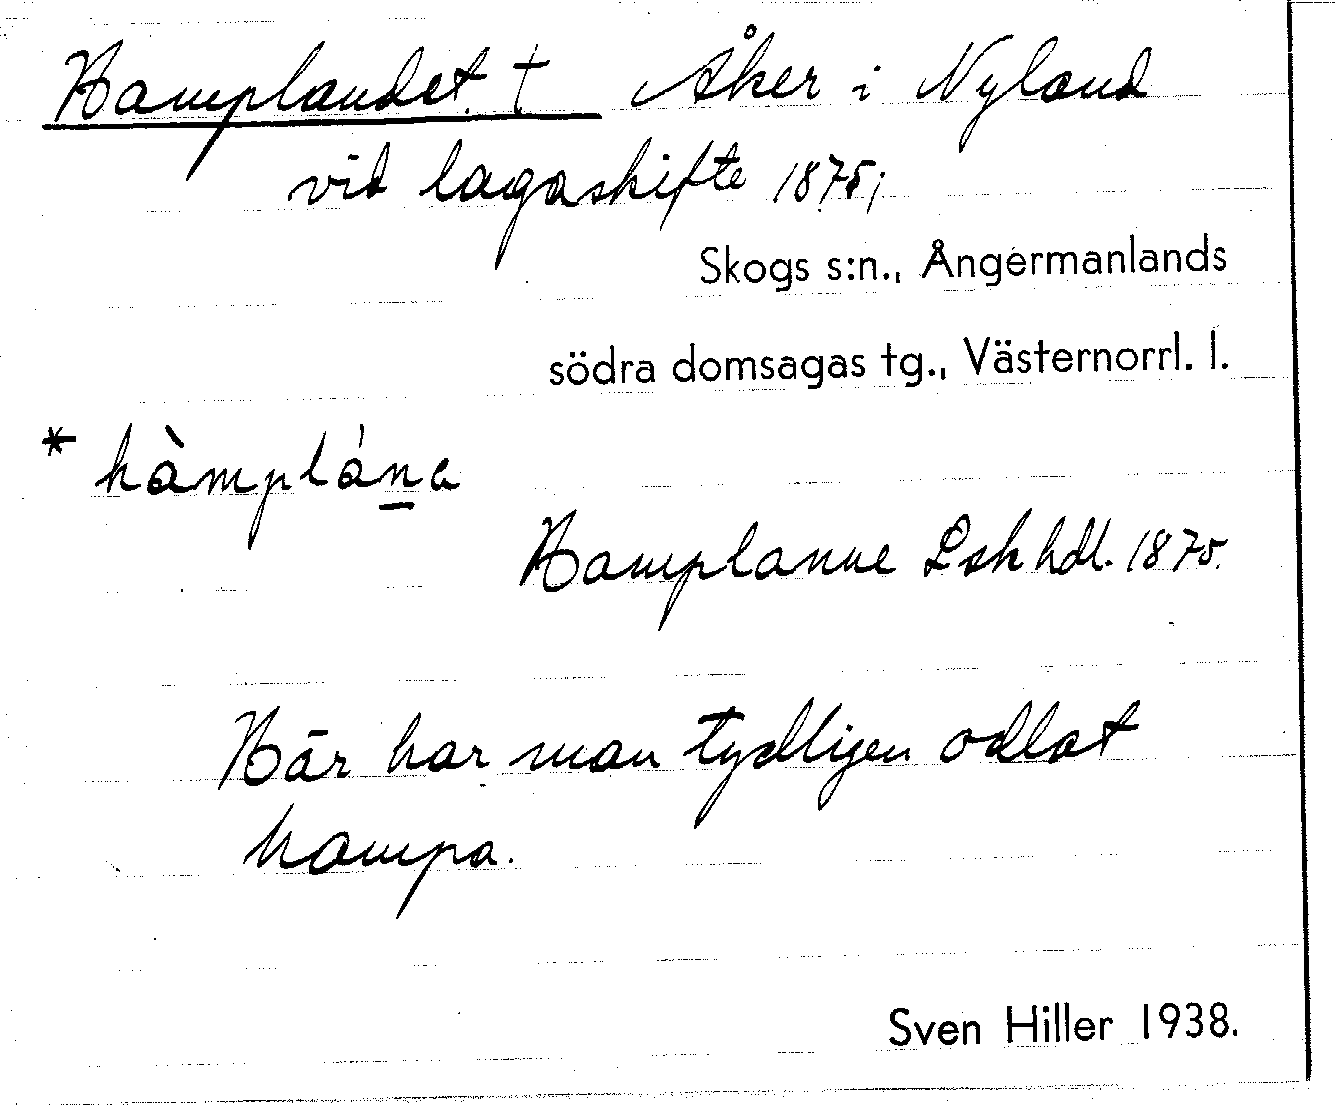 Hamplandet † Åker i Nyland
vid lagaskifte 1875;
Skogs s:n., Ångermanlands
södra domsagas tg., Västernorrl. l.
* hàmplána
Hamplanne Lskhdl. 1875.
Här har man tydligen odlat
hampa.
Sven Hiller 1938.